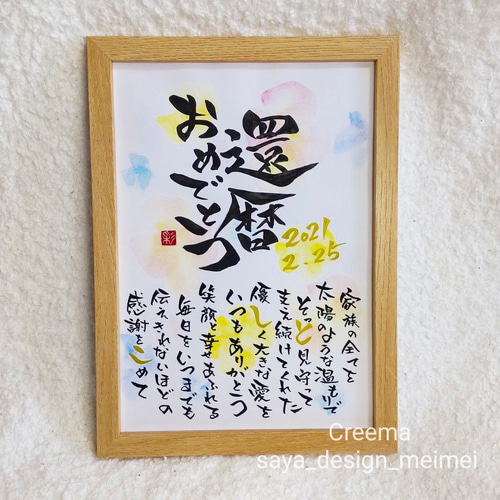 還暦
おめでとう
2021
2.25
彩
家族の全てを
太陽のような温もりで
そっと見守って
支え続けてくれた
優しく大きな愛を
いつもありがとう
笑顔と幸せあふれる
毎日をいつまでも
伝えきれないほどの
感謝をこめて
Creema
saya_design_meimei